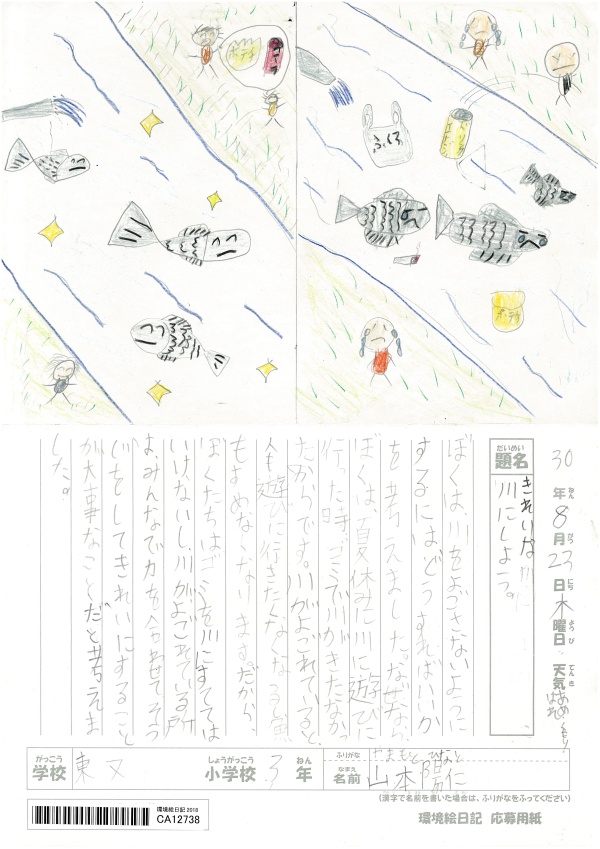 ポテチ
コーラ
ふくろ
ポテチ
30年8月23日木曜日 天気
ねん がつ にち ようび てんき
だいめい
題名
きれいな
川にしよう。
ぼくは、川をよごさないように
するにはどうすればいいか
を考えました。なぜなら
ぼくは、夏休みに川に遊びに
行った時、ゴミで川がきたなかっ
たからです。川がよごれていると
人も遊びに行きたくなくなるし魚
もすめなくなります。だから、
ぼくたちはゴミを川にすてては
いけないし、川がよごれている所
は、みんなで力を合わせてそう
じをしてきれいにすること
が大事なことだと考えま
した。
がっこう
学校 東又
しょうがっこう ねん
小学校 3年
ふりがな やまもと ひなと
なまえ
名前 山本陽仁
(漢字で名前を書いた場合は、ふりがなをふってください)
環境絵日記 2018
CA12738
環境絵日記 応募用紙